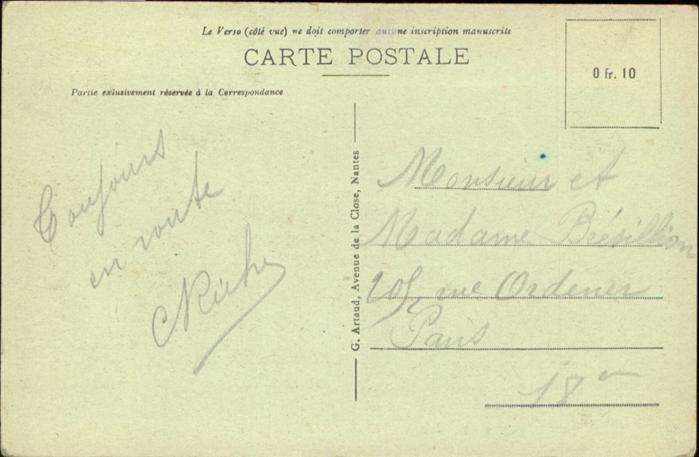 Le Verso (côté vue) ne doit comporter aucune inscription manuscrite
CARTE POSTALE
0 fr. 10
Partie exlusivement réservée à la Correspondance
Toujours
en route
G. Artaud, Avenue de la Close, Nantes
Monsieur et
Madame
rue Ordener
Paris
18